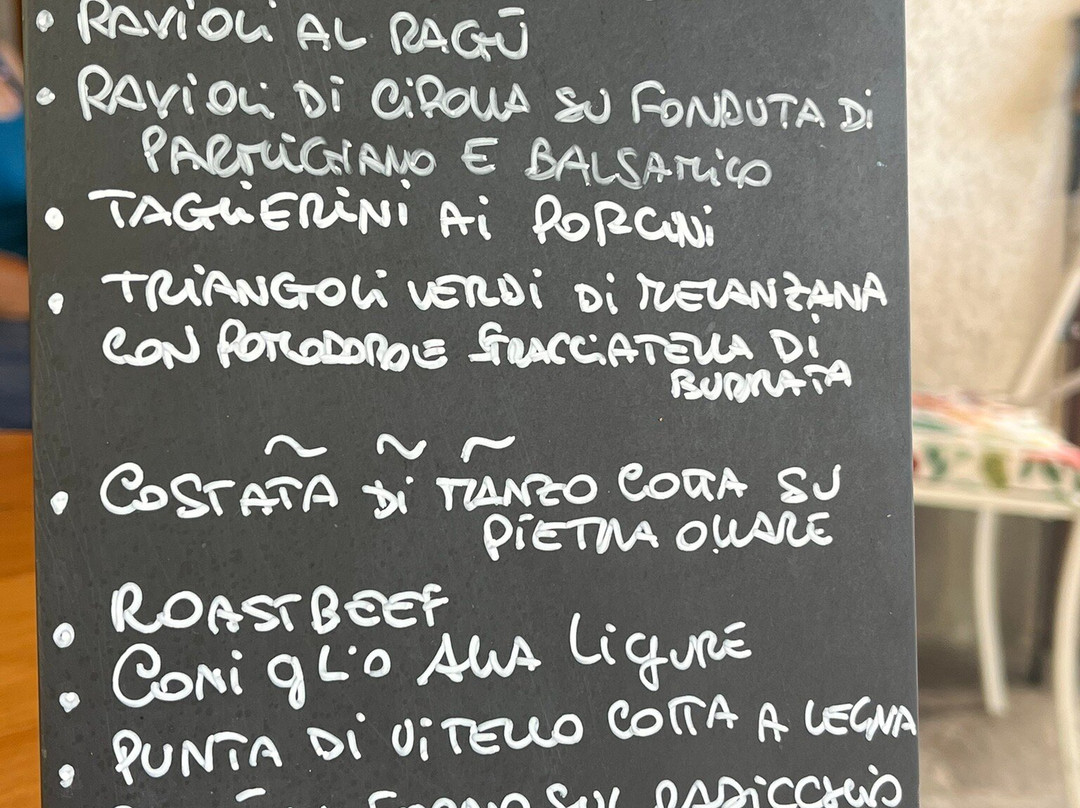 • RAVIOLI AL RAGŪ
• RAVIOLI DI CIPOLLA SU FONDUTA DI
PARMIGIANO E BALSAMICO
• TAGLIERINI AI PORCINI
• TRIANGOLI VERDI DI MELANZANA
CON POMODORO E STRACCIATELLA DI
BURRATA
~ ~ ~
• COSTATA DI MANZO COTTA SU
PIETRA OLLARE
• ROASTBEEF
• CONIGLIO ALLA LIGURE
• PUNTA DI VITELLO COTTA A LEGNA
FORNO SUL RADICCHIO